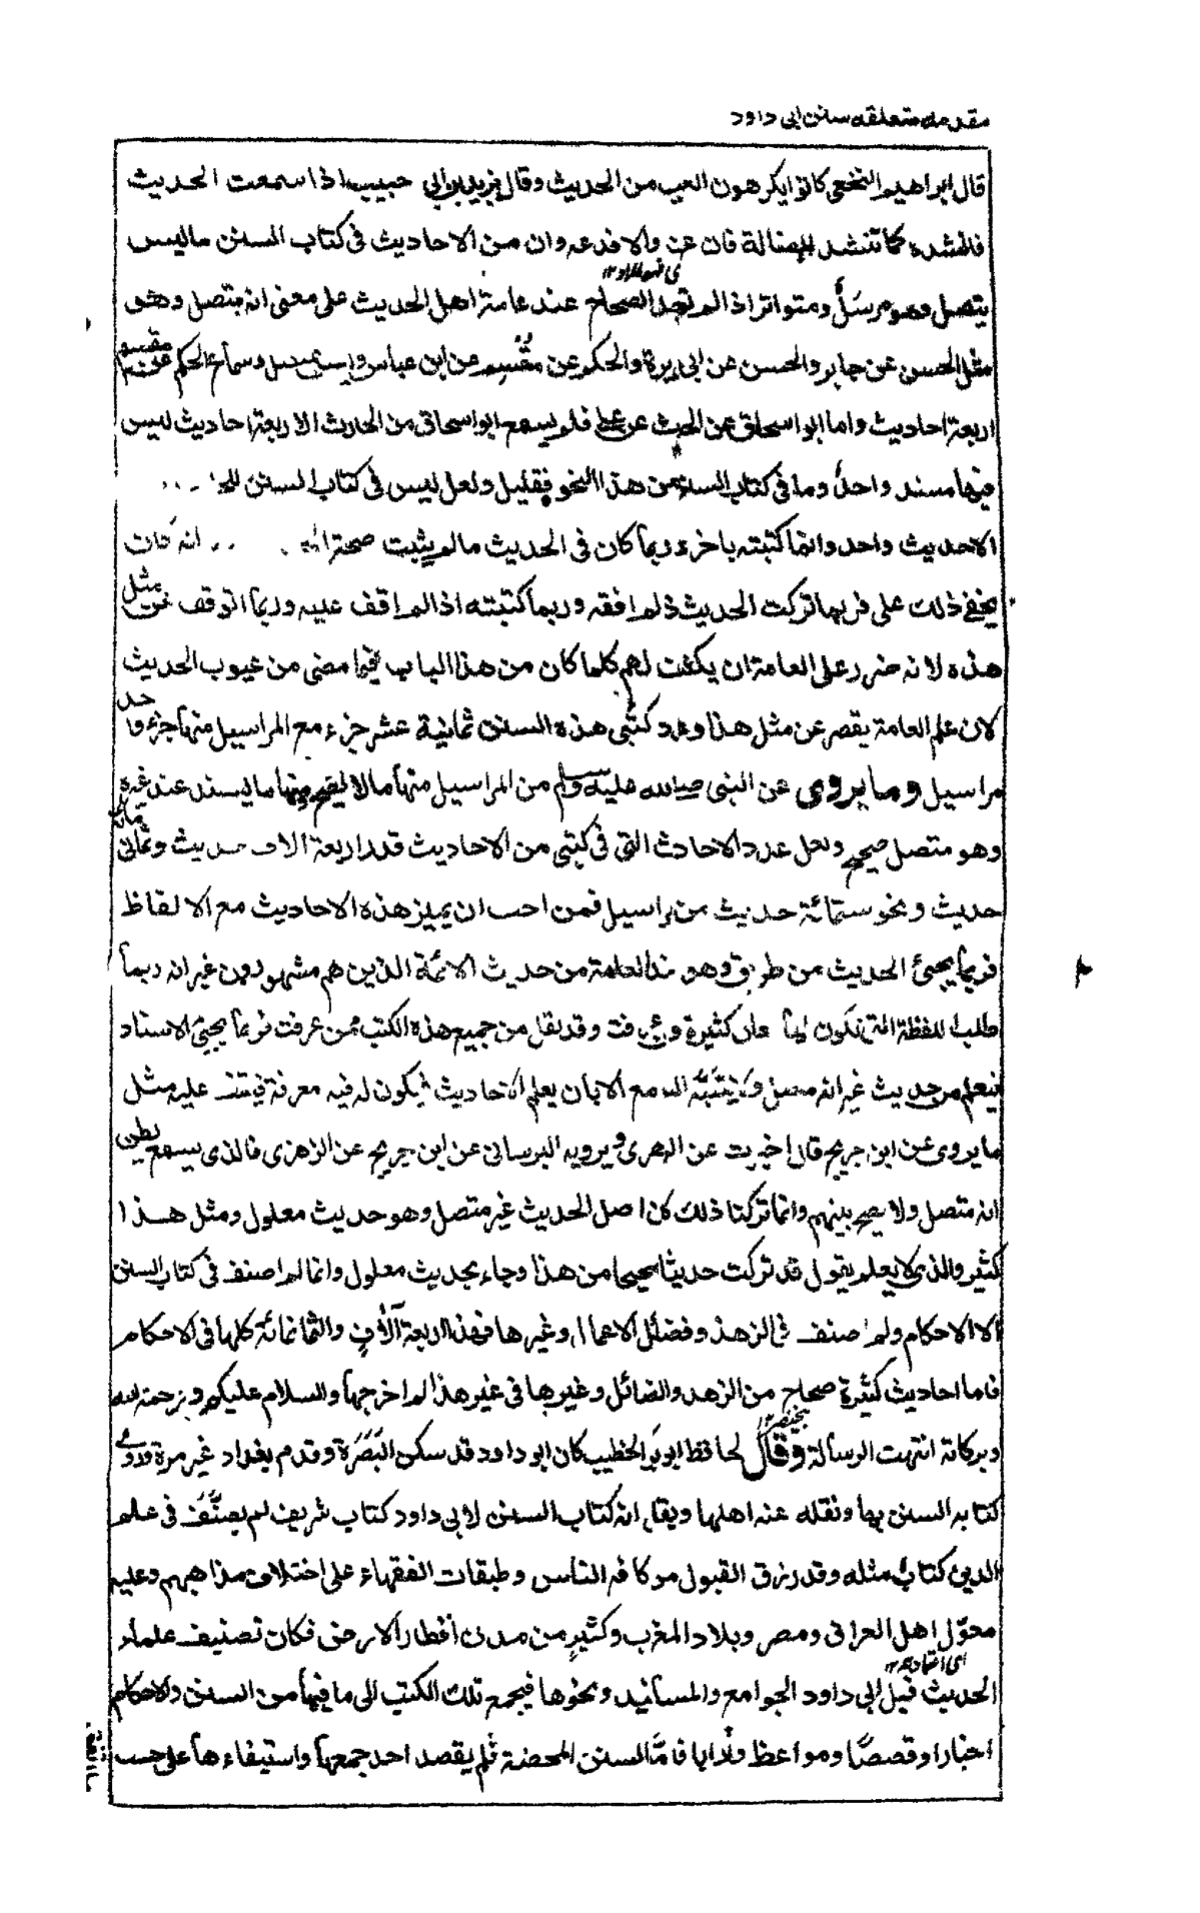 مقدمه متعلقه سنن ابی داود
قال ابراهيم النخعى كانوا يكرهون الغريب من الحديث وقال يزيد بن ابى حبيب اذا سمعت الحديث
فانشده كما تنشد الضالة فان عرف والا فدعه وان من الاحاديث فى كتاب السنن ماليس
بمتصل وهو مرسلٌ ومتواتر اذا لم توجد الصحاح عند عامة اهل الحديث على معنى انه متصل وهو
مثل الحسن عن جابر والحسن عن ابى هريرة والحكم عن مقسم عن ابن عباس وليس بمتصل وسماع الحكم عن مقسم
اربعة احاديث واما ابو اسحاق عن الحرث عن على فلم يسمع ابو اسحاق من الحارث الا اربعة احاديث ليس
فيها مسند واحد وما فى كتاب السنن من هذا النحو فقليل ولعل ليس فى كتاب السنن
الا حديث واحد وانما كتبته باخرة وربما كان فى الحديث مالم يثبت صحة انه كان
يخفى ذلك على فربما تركت الحديث اذ لم افقه وربما كتبته اذا لم اقف عليه وربما اتوقف عن مثل
هذه لانه ضرر على العامة ان يكشف لهم كلما كان من هذا الباب فيما مضى من عيوب الحديث
لان علم العامة يقصر عن مثل هذا وعدد كتبى هذه السنن ثمانية عشر جزء مع المراسيل منها جزء واحد
مراسيل وما يروى عن النبى صلى الله عليه وسلم من المراسيل منها مالا يصح ومنها ما يسند عند غيره
وهو متصل صحيح ولعل عدد الاحادث التى فى كتبى من الاحاديث قدر اربعة الاف حديث وثمانى مائة
حديث ونحو ستمائة حديث من مراسيل فمن احب ان يميز هذه الاحاديث مع الالفاظ
فربما يجئ الحديث من طريق وهو عند العامة من حديث الائمة الذين هم مشهورون غير انه ربما
طلب اللفظة التى تكون لها معان كثيرة وممن عرفت وقد نقل من جميع هذه الكتب ممن عرفت فربما يجيئ الاسناد
فيعلم من حديث غيره انه متصل ولا يتنبه السامع الا بان يعلم الاحاديث فيكون له فيه معرفة فيقف عليه مثل
ما يروى عن ابن جريج قال اخبرت عن الزهرى ويرويه البرسانى عن ابن جريج عن الزهرى فالذى يسمع يظن
انه متصل ولا يصح بينهم وانما تركنا ذلك لان اصل الحديث غير متصل وهو حديث معلول ومثل هذا
كثير والذى لا يعلم يقول قد تركت حديثا صحيحا من هذا وجاء بحديث معلول وانما لم اصنف فى كتاب السنن
الا الاحكام ولم اصنف فى الزهد وفضائل الاعمال وغيرها فهذه اربعة آلاف والثمانمائة كلها فى الاحكام
فاما احاديث كثيرة صحاح من الزهد والفضائل وغيرها فى غير هذا لم اخرجها والسلام عليكم ورحمة الله
وبركاته انتهت الرسالة وقال الحافظ ابو بكر الخطيب كان ابو داود قد سكن البَصَرَة وقدم بغداد غير مرة وروى
كتابه السنن بها ونقله عنه اهلها ويقال انه كتاب السنن لابى داود كتاب شريف لم يصنَّف فى علم
الدين كتابٌ مثله وقد رزق القبول من كافة الناس وطبقات الفقهاء على اختلاف مذاهبهم وعليه
معوّل اهل العراق ومصر وبلاد المغرب وكثيرٍ من مدن اقطار الارض فكان تصنيف علماء
اى اعتماد ١٢
الحديث قبل ابى داود الجوامع والمسانيد ونحوها فيجمع تلك الكتب الى ما فيها من السنن والاحكام
اخبارا وقصصًا ومواعظ وادابا فامّا السنن المحضة فلم يقصد احد جمعها واستيفاءها على حسب